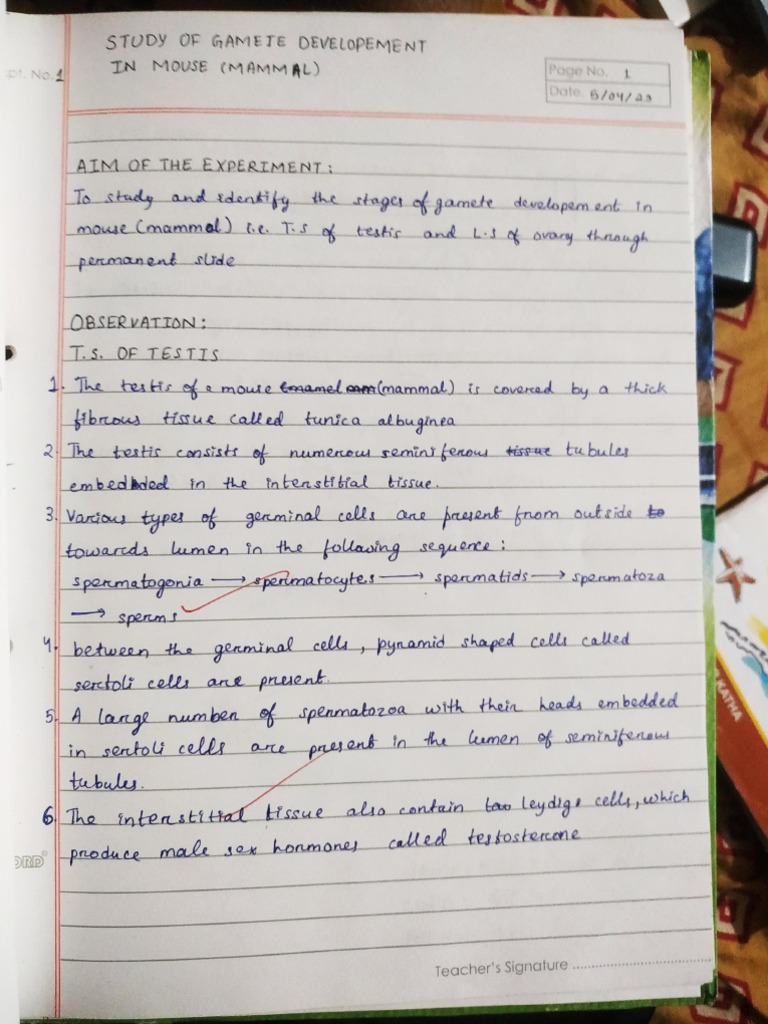 STUDY OF GAMETE DEVELOPEMENT
IN MOUSE (MAMMAL)
pt. No. 1
Page No. 1
Date. 5/04/23
AIM OF THE EXPERIMENT:
To study and identify the stages of gamete developement in
mouse (mammal) i.e. T.S of testis and L.S of ovary through
permanent slide
OBSERVATION:
T.S. OF TESTIS
1. The testis of a mouse (mammal) is covered by a thick
fibrous tissue called tunica albuginea
2. The testis consists of numerous seminiferous tissue tubules
embedded in the interstitial tissue.
3. Various types of germinal cells are present from outside to
towards lumen in the following sequence:
spermatogonia → spermatocytes → spermatids → spermatoza
→ sperms
4. between the germinal cells, pyramid shaped cells called
sertoli cells are present.
5. A large number of spermatozoa with their heads embedded
in sertoli cells are present in the lumen of seminiferous
tubules.
6. The interstitial tissue also contain leydig cells, which
produce male sex hormones called testosterone
ORD
Teacher's Signature
KATHA